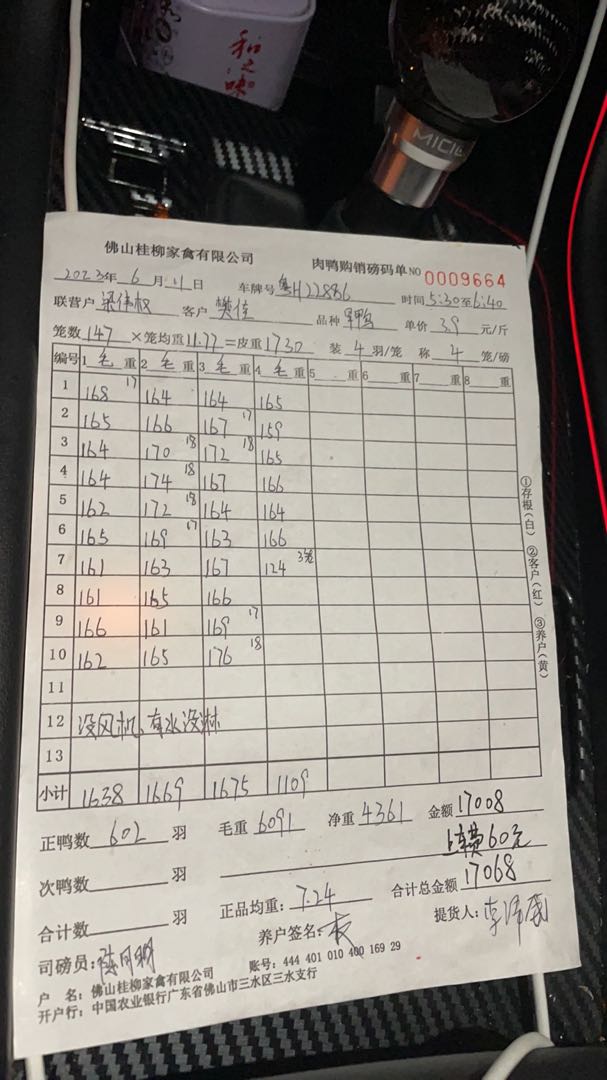 和之味
MICIL
佛山桂柳家禽有限公司 肉鸭购销磅码单 NO 0009664
2023年 6 月 11 日 车牌号 粤H22886 时间 5:30至6:40
联营户 梁伟权 客户 樊佳 品种 单价 3.9 元/斤
笼数 147 ×笼均重 11.77 =皮重 1730 装 4 羽/笼 称 4 笼/磅
编号 1 毛 重 2 毛 重 3 毛 重 4 毛 重 5 重 6 重 7 重 8 重
1 168 17 164 164 165
2 165 166 167 17 159
3 164 170 18 172 18 165
4 164 174 18 167 166
5 162 172 18 164 164
6 165 169 17 163 166
7 161 163 167 124 3笼
8 161 165 166
9 166 161 169 17
10 162 165 176 18
11
12 没风机、有水没淋
13
小计 1638 1669 1675 1109
正鸭数 602 羽 毛重 6091 净重 4361 金额 17008
60元
次鸭数 羽
合计数 羽 正品均重: 7.24 合计总金额 17068
司磅员: 养户签名: 权 提货人:
户 名: 佛山桂柳家禽有限公司 账号: 444 401 010 400 169 29
开户行: 中国农业银行广东省佛山市三水区三水支行
①存根(白) ②客户(红) ③养户(黄)